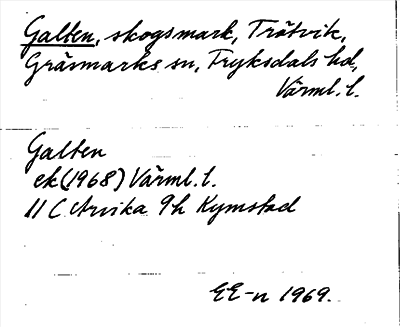 Galten, skogsmark, Trötvik,
Gräsmarks sn, Fryksdals hd,
Värml. l.
Galten
ek (1968) Värml. l.
11 C Arvika 9h Kymstad
EE-n 1969.